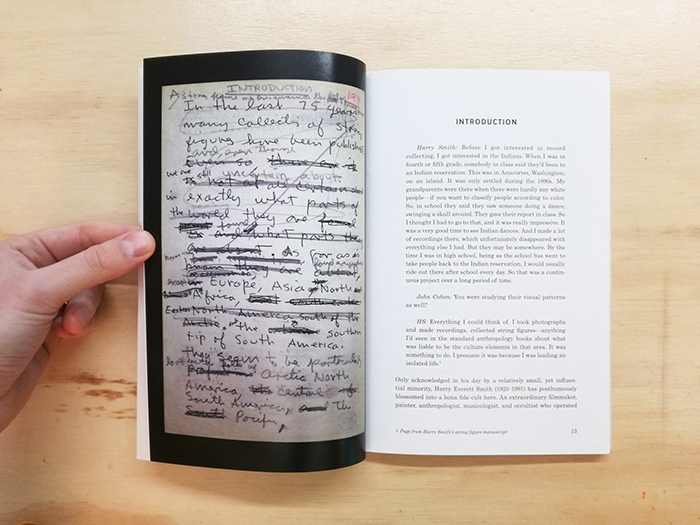 INTRODUCTION
In the last 75 years
many collects of string
figures have been published
and even though
Even so there are it
we are still uncertain about
is not at all certain
in exactly what parts of
the world they are found
As far as
Europe, Asia North
Africa
Eastern North America south of the
Arctic, or the southern
tip of South America.
They seem to be particular
Arctic North
America, the Central
South America, and the
South Pacific,
INTRODUCTION
Harry Smith: Before I got interested in record
collecting, I got interested in the Indians. When I was in
fourth or fifth grade, somebody in class said they'd been to
an Indian reservation. This was in Anacortes, Washington,
on an island. It was only settled during the 1890s. My
grandparents were there when there were hardly any white
people—if you want to classify people according to color.
So, in school they said they saw someone doing a dance,
swinging a skull around. They gave their report in class. So
I thought I had to go to that, and it was really impressive. It
was a very good time to see Indian dances. And I made a lot
of recordings there, which unfortunately disappeared with
everything else I had. But they may be somewhere. By the
time I was in high school, being as the school bus went to
take people back to the Indian reservation, I would usually
ride out there after school every day. So that was a contin-
uous project over a long period of time.
John Cohen: You were studying their visual patterns
as well?
HS: Everything I could think of. I took photographs
and made recordings, collected string figures—anything
I'd seen in the standard anthropology books about what
was liable to be the culture elements in that area. It was
something to do. I presume it was because I was leading an
isolated life.¹
Only acknowledged in his day by a relatively small, yet influen-
tial minority, Harry Everett Smith (1923–1991) has posthumously
blossomed into a bona fide cult hero. An extraordinary filmmaker,
painter, anthropologist, musicologist, and occultist who operated
« Page from Harry Smith's string figure manuscript
15